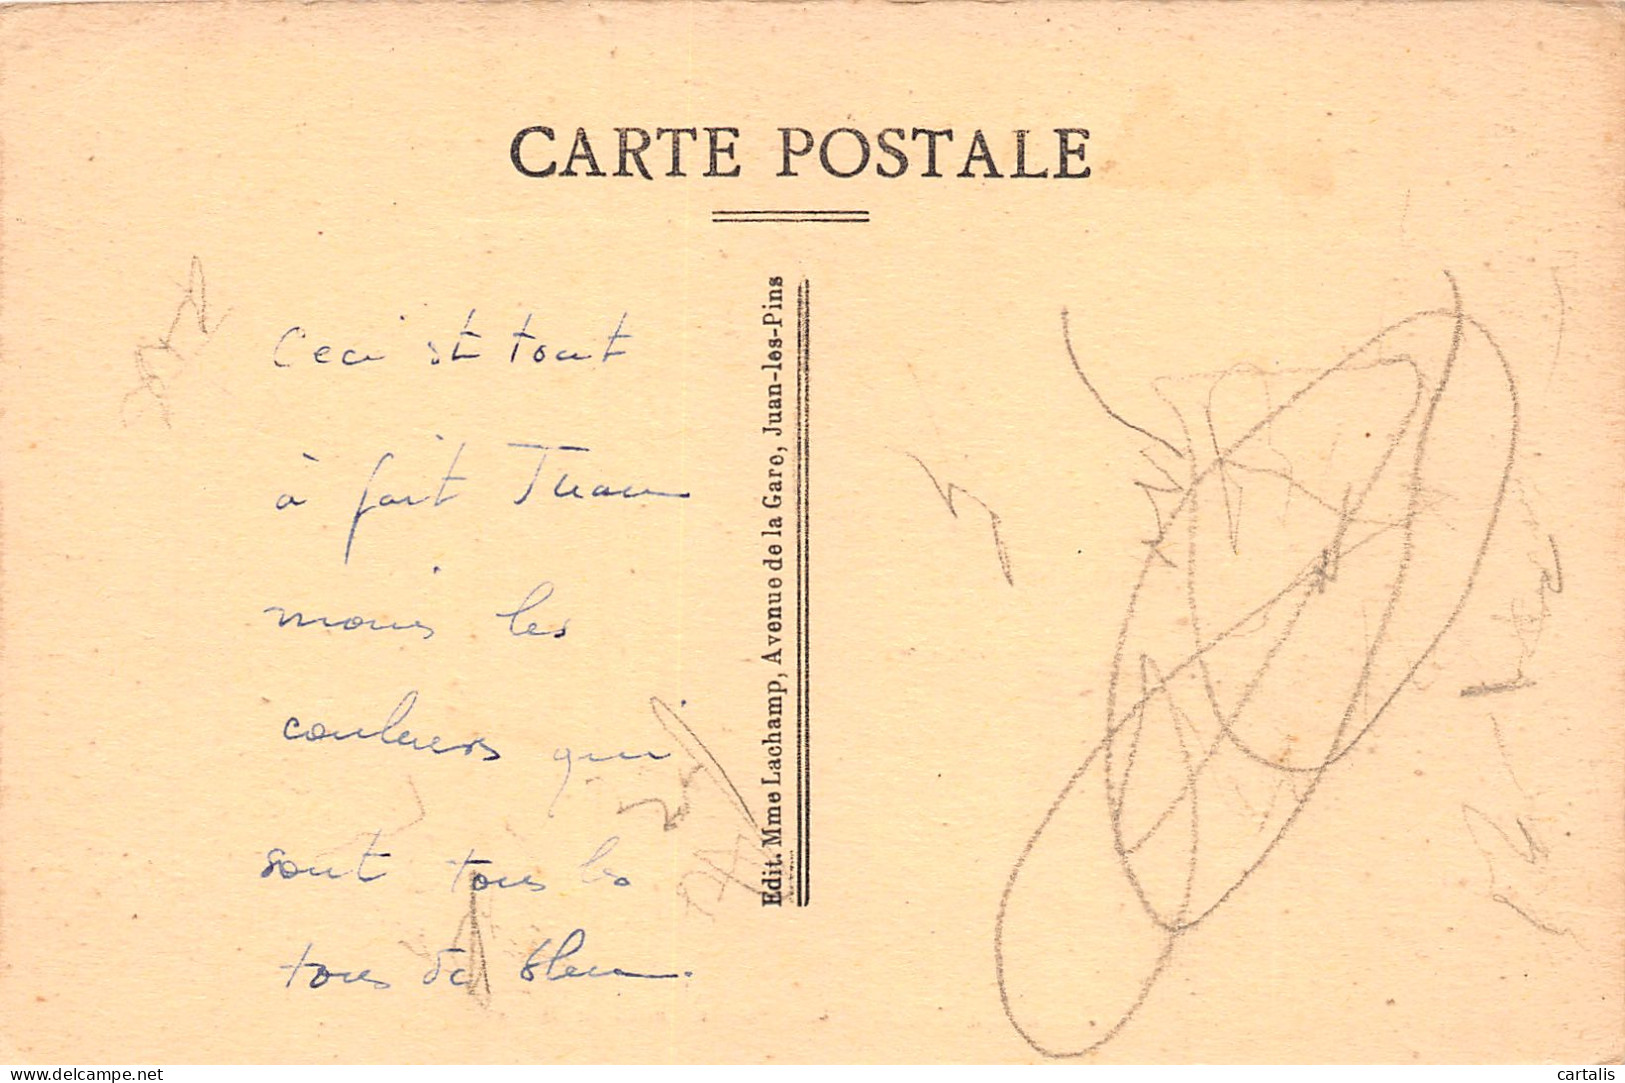 CARTE POSTALE
Ceci est tout
à fait Juan
moins les
couleurs qui
sont tous les
tons du bleu.
Edit. Mme Lachamp, Avenue de la Gare, Juan-les-Pins
www.delcampe.net
cartalis